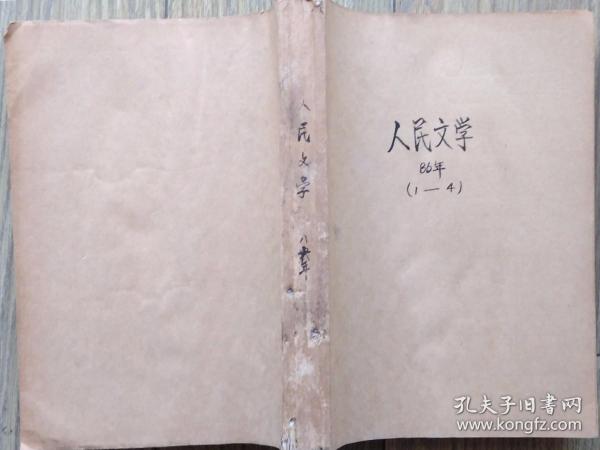 人民文学
86年
(1—4)
人民文学
八六年
孔夫子旧书网
www.kongfz.com